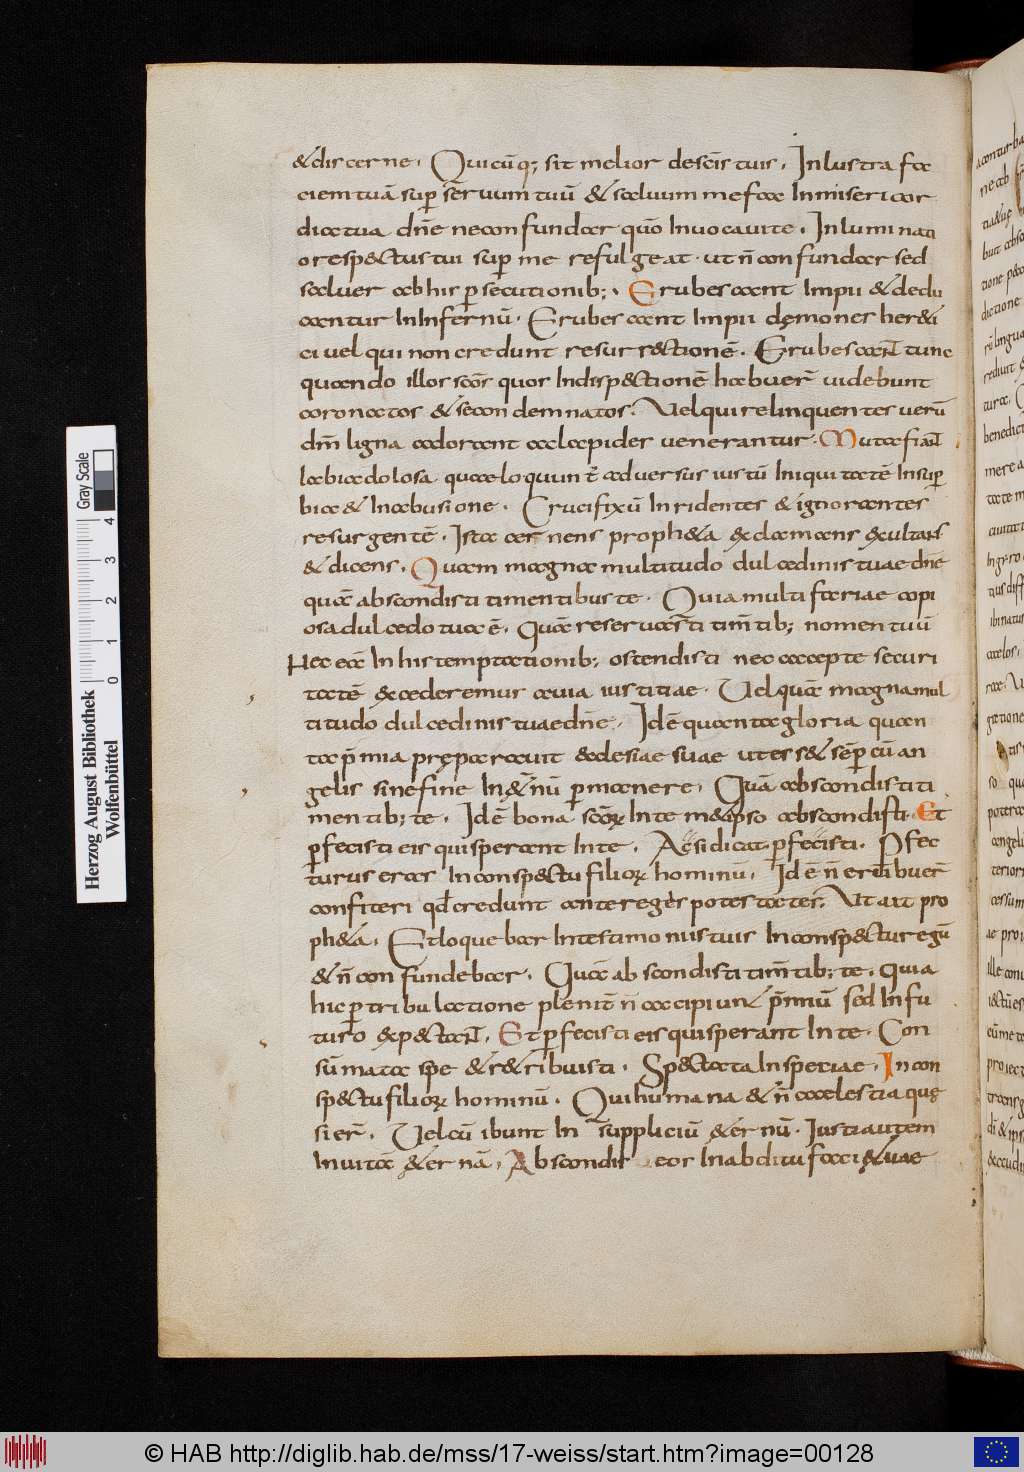 &discerne. Quicūq; sit melior descīs tuis. Inlustra fa
ciem tuā sup̄ servum tuū & salvum me fac In miser i cor
dia tua dn̄e ne confundar qūo Invocavi te. In lumi nati
o respectus tui sup̄ me refulgeat. ut n̄ confundar sed
salver ab his p̄secutionib; . Erubescant Impii & dedu
cantur In Infernū. Erubescant Impii dęmones her&i
ci vel qui non credunt resurrectionē. Erubescan̄t tunc
quando illos scōs quos Indispectionē habuer̄ videbunt
coronatos & se condemnatos. Vel qui relinquentes verū
dm̄ ligna adorant ac lapides venerantur. Muta fian̄t
labia dolosa. quae loquun t̄ adversus iustū Iniquitatē In sup̄
bia & In abusione. Crucifixū Inridentes & ignorantes
resurgentē. Ista cernens proph&a exclamans exultans
& dicens. Quam magna multitudo dulcedinis tuae dn̄e
quā abscondisti timentibus te. Quia multifariae copi
osa dulcedo tua ē. Quā reservasti tim̄tib; nomen tuū
Nec eā In his temptationib; ostendisti nec accepte securi
tatē excederemur a via iustitiae. Vel quā magna mul
titudo dulcedinis tuae dn̄e. Id ē quanta gloria quan
ta p̄mia pręparavit ecclesiae suae ut esse& sēp cū an
gelis sine fine In&ernū p̄manere. Quā abscondisti ti
mentib; te. Id ē bona scōꝝ In tem& ipso abscondisti. Et
p̄fecisti eis qui sperant In te. Ac si dicat. p̄fecisti. Pfec
turus eras In conspectu filioꝝ hominū. Id ē n̄ erubuer̄
confiteri qd̄ credunt ante reges potestates. Ut ait pro
ph&a. Et loquebar In testimoniis tuis In conspectu regū
& n̄ confundebar. Quā abscondisti tim̄tib; te. quia
hic p̄ tribulatione plenit̄ n̄ accipiun& p̄miū sed In fu
turo expectan̄t. Et p̄fecisti eis qui sperant In te. Con
sūmata spe & r&ribuisti. Spectata In speciae. In con
spectu filioꝝ hominū. Qui humana & n̄ caelestia quę
sier̄. Vel cū ibunt In suppliciū &er nū. Iusti autem
In vitā &er nā. Abscondis eos In abditu faciei tuae
Herzog August Bibliothek
Wolfenbüttel
0 1 2 3 4
Gray Scale
© HAB http://diglib.hab.de/mss/17-weiss/start.htm?image=00128